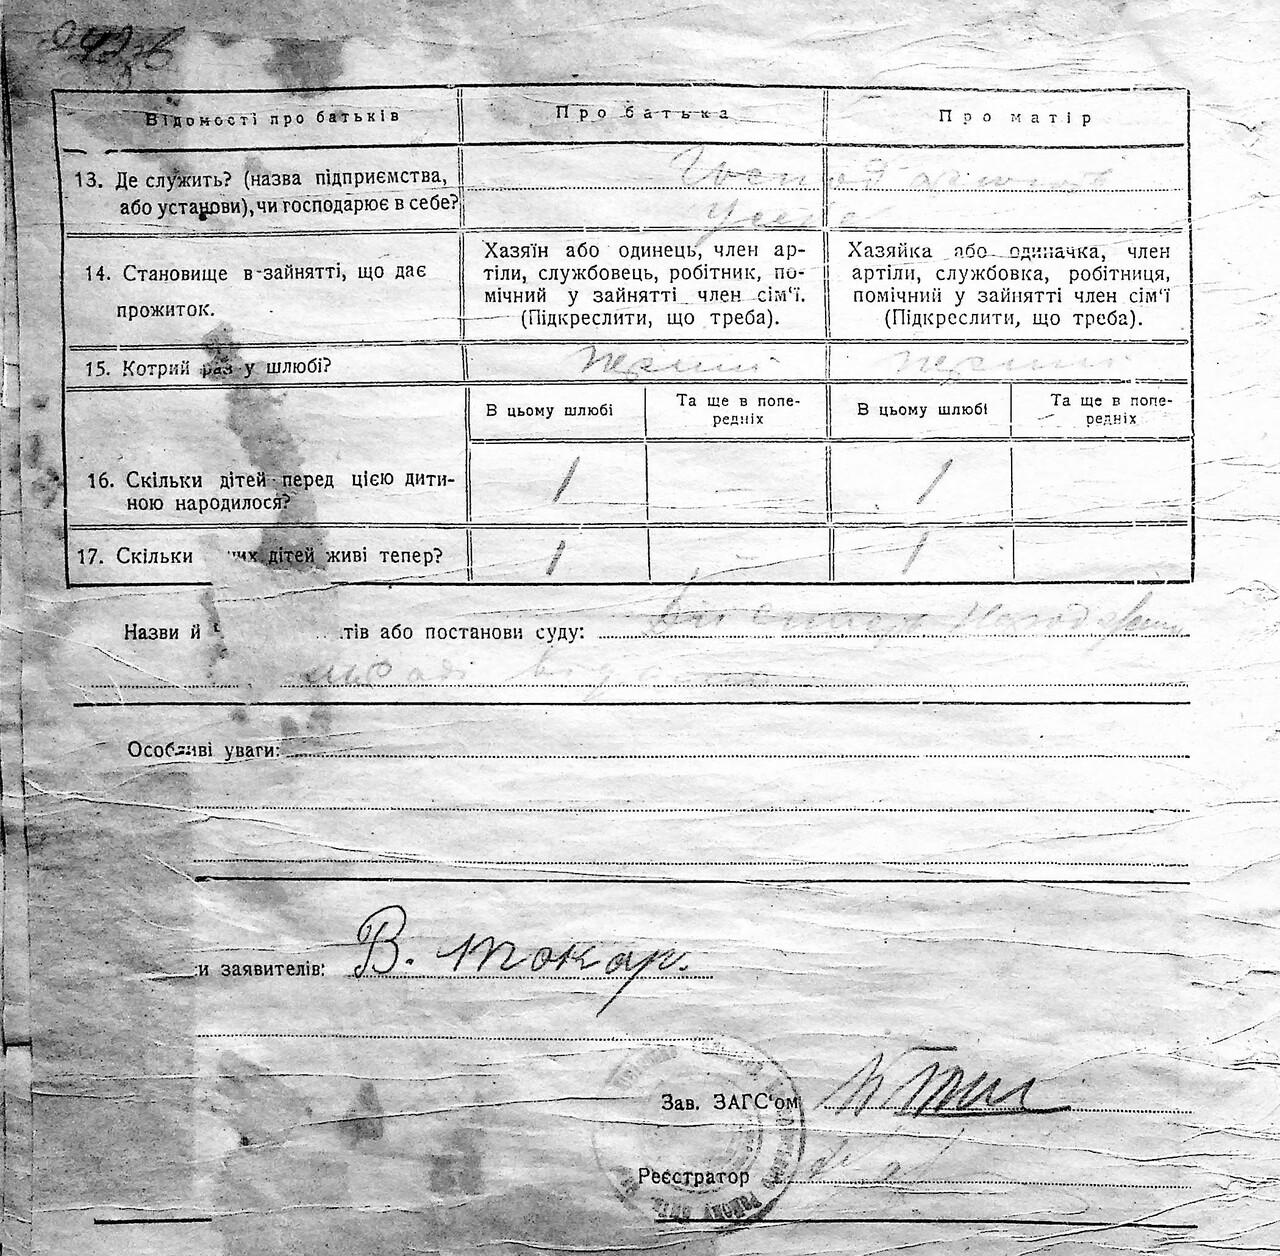 Відомості про батьків
Про батька
Про матір
13. Де служить? (назва підприємства,
або установи), чи господарює в себе?
14. Становище в зайнятті, що дає
прожиток.
Хазяїн або одинець, член ар-
тіли, службовець, робітник, по-
мічний у зайнятті член сім'ї.
(Підкреслити, що треба).
Хазяйка або одиначка, член
артіли, службовка, робітниця,
помічний у зайнятті член сім'ї
(Підкреслити, що треба).
15. Котрий раз у шлюбі?
перший
перший
В цьому шлюбі
Та ще в попе-
редніх
В цьому шлюбі
Та ще в попе-
редніх
16. Скільки дітей перед цією дити-
ною народилося?
1
1
17. Скільки дітей живі тепер?
1
1
Назви й тів або постанови суду:
Особливі уваги:
и заявителів: В. Токар.
Зав. ЗАГС'ом
Реєстратор